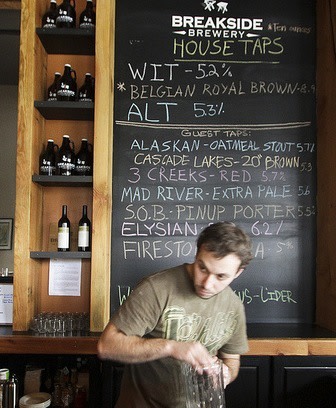 BREAKSIDE
BREWERY
*Ten ounces
HOUSE TAPS
WIT - 5.2%
*BELGIAN ROYAL BROWN-
ALT 5.3%
GUEST TAPS:
ALASKAN-OATMEAL STOUT 5.7%
CASCADE LAKES-20" BROWN 5.3
3 CREEKS-RED 5.7%
MAD RIVER-EXTRA PALE 5.6
S.O.B.-PINUP PORTER 5.5%
ELYSIAN 6.2%
FIRESTO A
US-CIDER